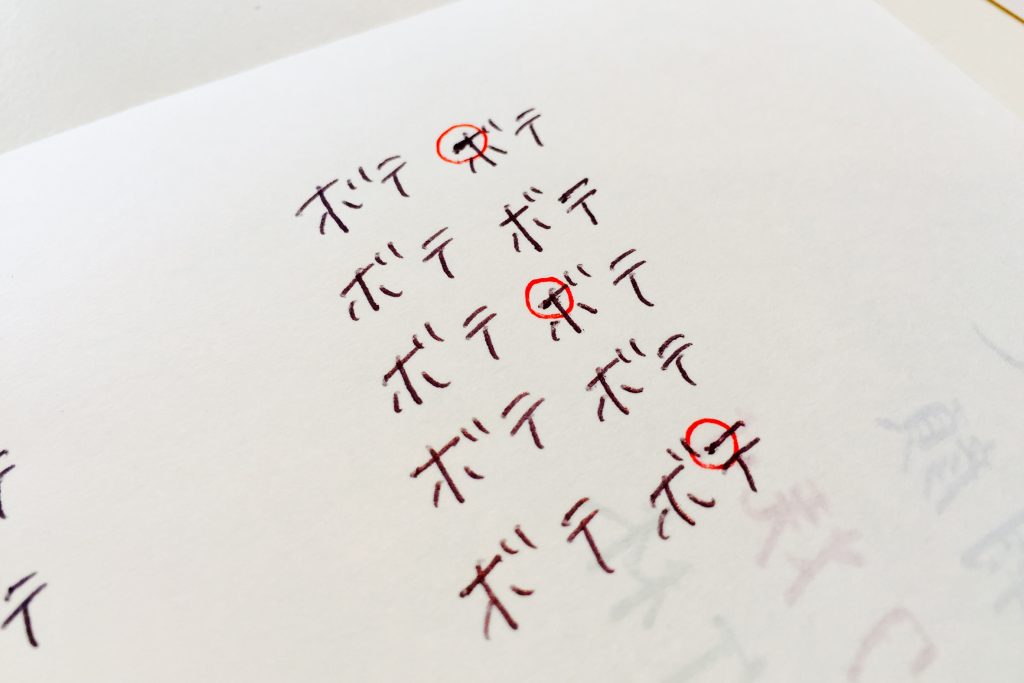 ボテ ボテ
ボテ ボテ
ボテ ボテ
テ ボテ ボテ
テ ボテ ボテ